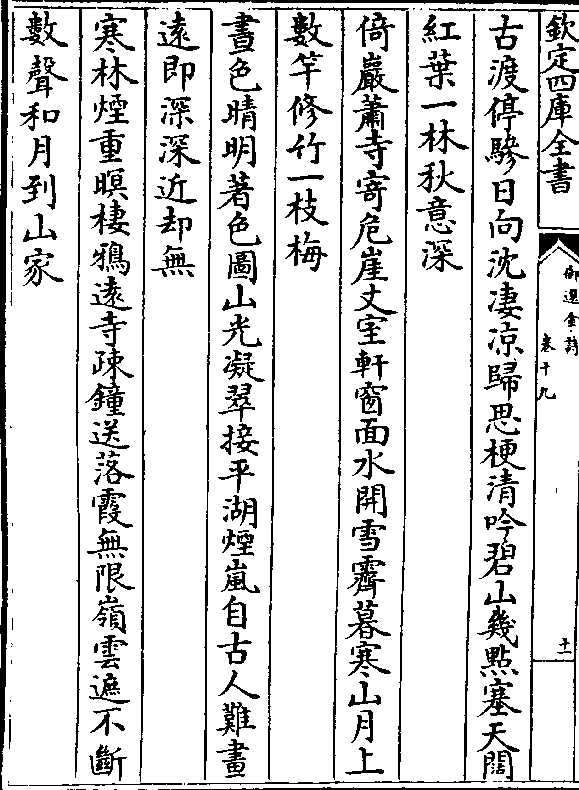 欽定四庫全書
御選金詩
卷十九
十一
古渡停驂日向沈凄凉歸思梗清吟碧山幾點塞天闊
紅葉一林秋意深
倚巖蕭寺寄危崖丈室軒窗面水開雪霽暮寒山月上
數竿修竹一枝梅
晝色晴明著色圖山光凝翠接平湖煙嵐自古人難畫
遠即深深近却無
寒林煙重暝棲鴉遠寺疎鐘送落霞無限嶺雲遮不斷
數聲和月到山家